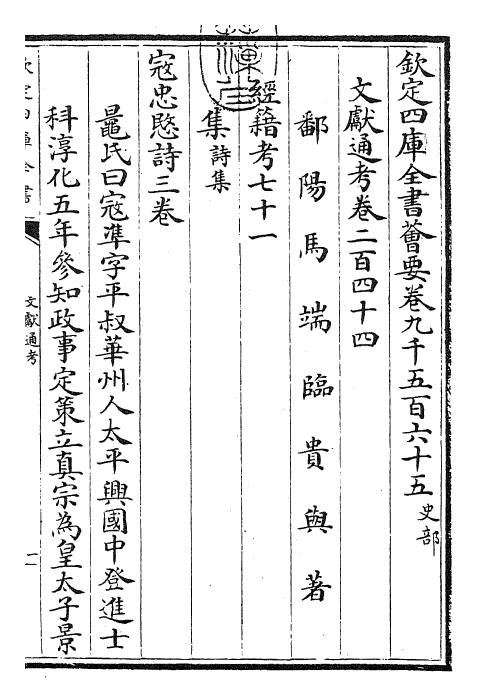 欽定四庫全書薈要卷九千五百六十五 史部
文獻通考卷二百四十四
鄱陽馬端臨貴與著
經籍考七十一
集 詩集
寇忠愍詩三卷
鼂氏曰寇凖字平叔華州人太平興國中登進士
科淳化五年參知政事定策立真宗為皇太子景
欽定四庫全書
文獻通考
一